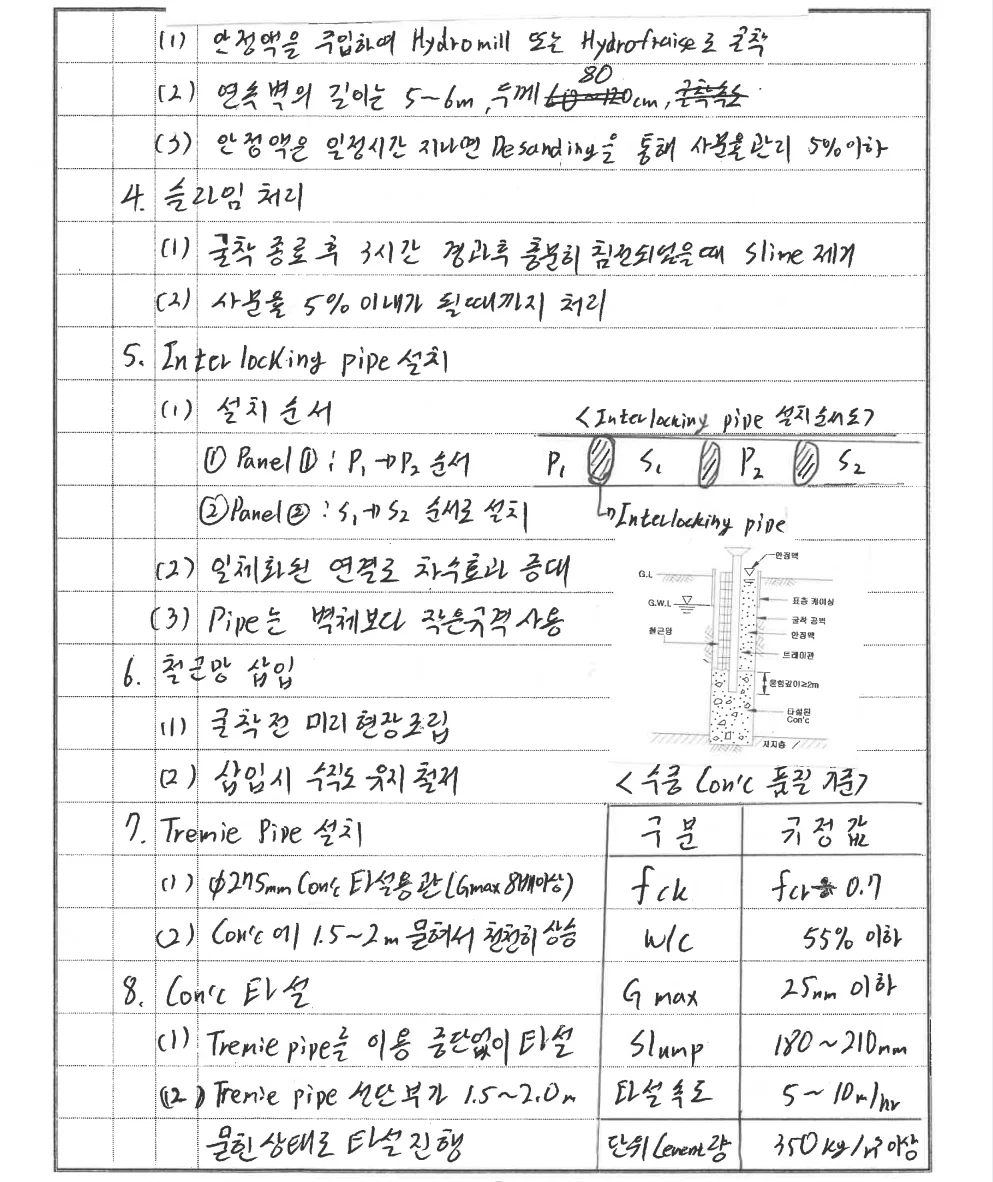 (1) 안정액을 주입하여 Hydromill 또는 Hydrofraise로 굴착
80
(2) 연속벽의 길이는 5~6m, 두께 60~120cm, 굴착속도
(3) 안정액은 일정시간 지나면 Desanding을 통해 사분율관리 5%이하
4. 슬라임 처리
(1) 굴착 종료 후 3시간 경과후 충분히 침전되었을때 Slime 제거
(2) 사분율 5% 이내가 될때까지 처리
5. Interlocking pipe 설치
(1) 설치 순서
<Interlocking pipe 설치순서도>
① Panel ① : P₁→P₂ 순서
P₁ S₁ P₂ S₂
② Panel ② : S₁→S₂ 순서로 설치
Interlocking pipe
(2) 일체화된 연결로 차수효과 증대
(3) Pipe는 벽체보다 작은규격 사용
안정액
G.L
표층 케이싱
G.W.L
굴착 공벽
철근망
안정액
트레미관
묻힘깊이≥2m
타설된
Con'c
지지층
6. 철근망 삽입
(1) 굴착전 미리 현장조립
(2) 삽입시 수직도 유지 철저
<수중 Con'c 품질 기준>
7. Tremie Pipe 설치
구분 규정값
(1) φ275mm Con'c 타설용관 (Gmax 8배이상)
fck fcr 0.7
(2) Con'c에 1.5~2m 묻혀서 천천히 상승
W/C 55% 이하
8. Con'c 타설
G max 25mm 이하
(1) Tremie pipe를 이용 중단없이 타설
Slump 180~210mm
(2) Tremie pipe 선단부가 1.5~2.0m
타설속도 5~10m/hr
묻힌상태로 타설진행
단위 Cement량 350kg/㎥ 이상